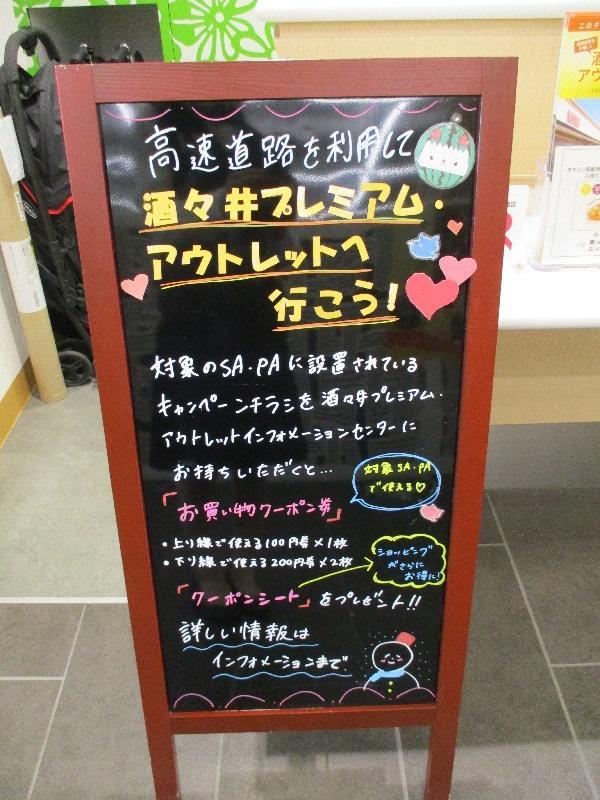 高速道路を利用して
酒々井プレミアム・
アウトレットへ
行こう!
対象のSA・PAに設置されている
キャンペーンチラシを酒々井プレミアム・
アウトレットインフォメーションセンターに
お持ちいただくと…
対象SA・PA
で使える♡
「お買い物クーポン券」
・上り線で使える100円券×1枚
・下り線で使える200円券×2枚
ショッピング
がさらに
お得に!
「クーポンシート」をプレゼント!!
詳しい情報は
インフォメーションまで